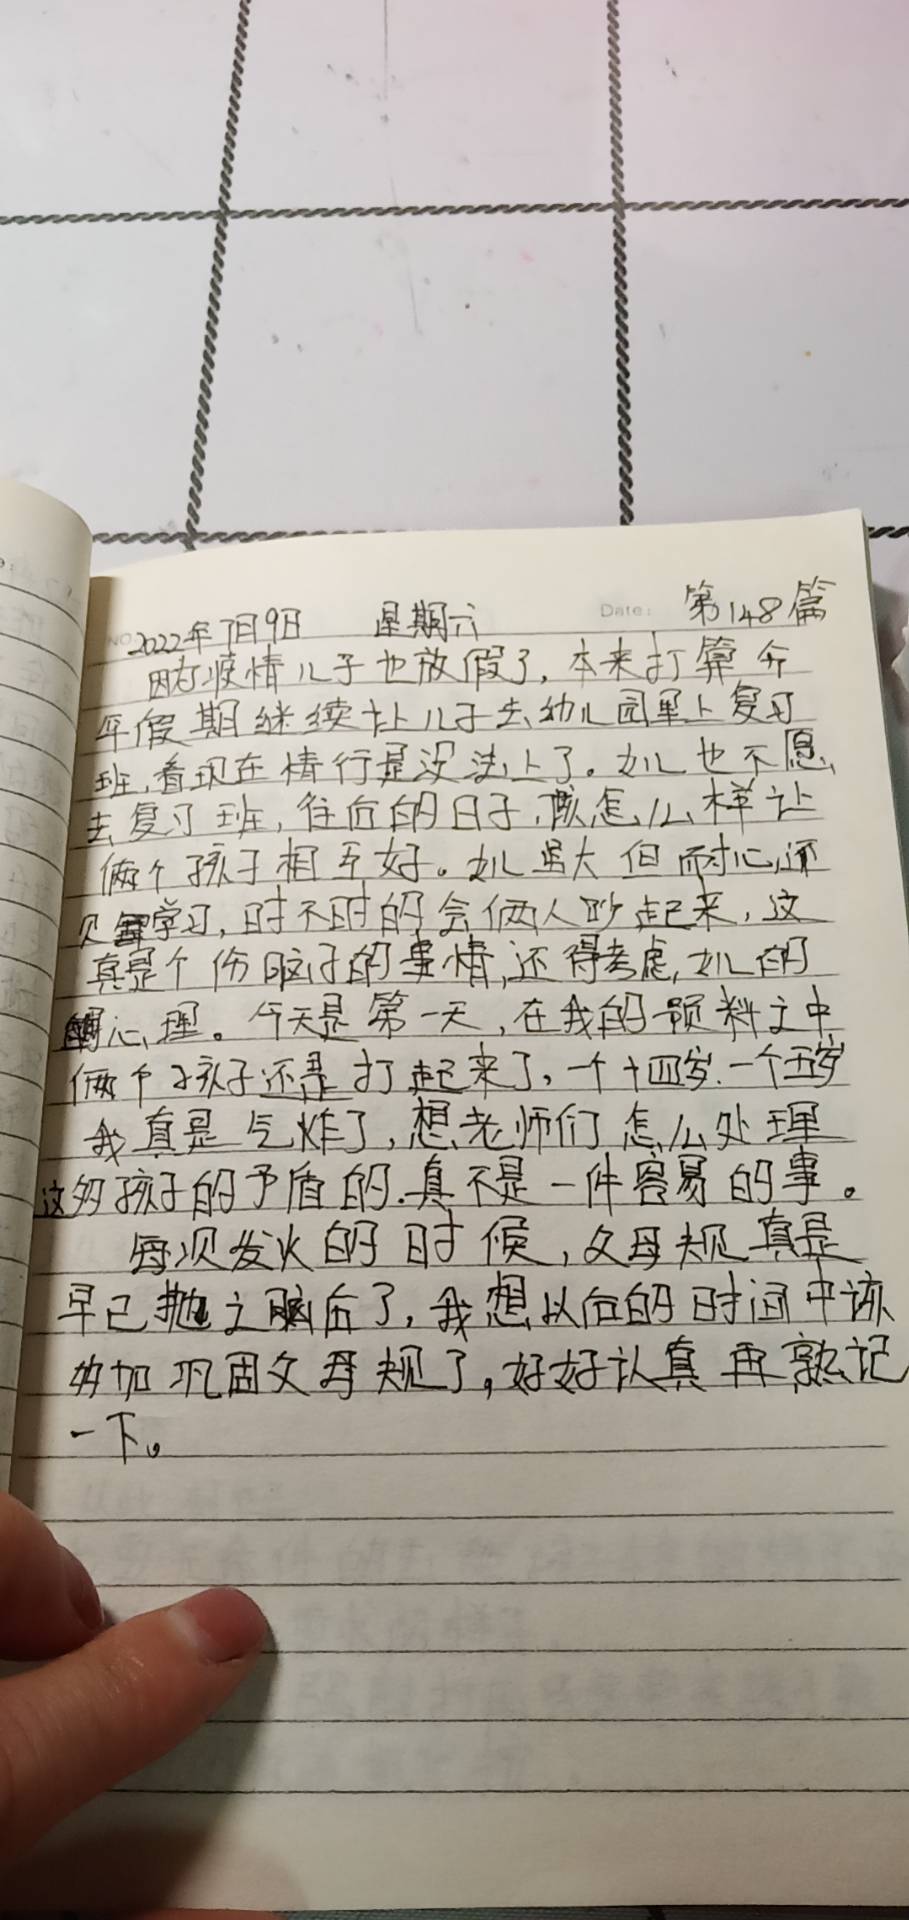 NO. 2022年7月9日 星期六 Date: 第148篇
因为疫情儿子也放假了，本来打算今
年假期继续让儿子去幼儿园里上复习
班，看现在情行是没法上了。女儿也不愿
去复习班，往后的日子，该怎么样让
俩个孩子相互好。女儿虽大但耐心还
学习，时不时的会俩人吵起来，这
真是个伤脑子的事情，还得考虑，女儿的
心理。今天是第一天，在我的预料之中
俩个孩子还是打起来了，一个十四岁.一个五岁
我真是气炸了，想老师们怎么处理
这多孩子的予盾的.真不是一件容易的事。
每次发火的时候，父母规真是
早已抛之脑后了，我想以后的时间中该
多加巩固父母规了，好好认真再熟记
一下。